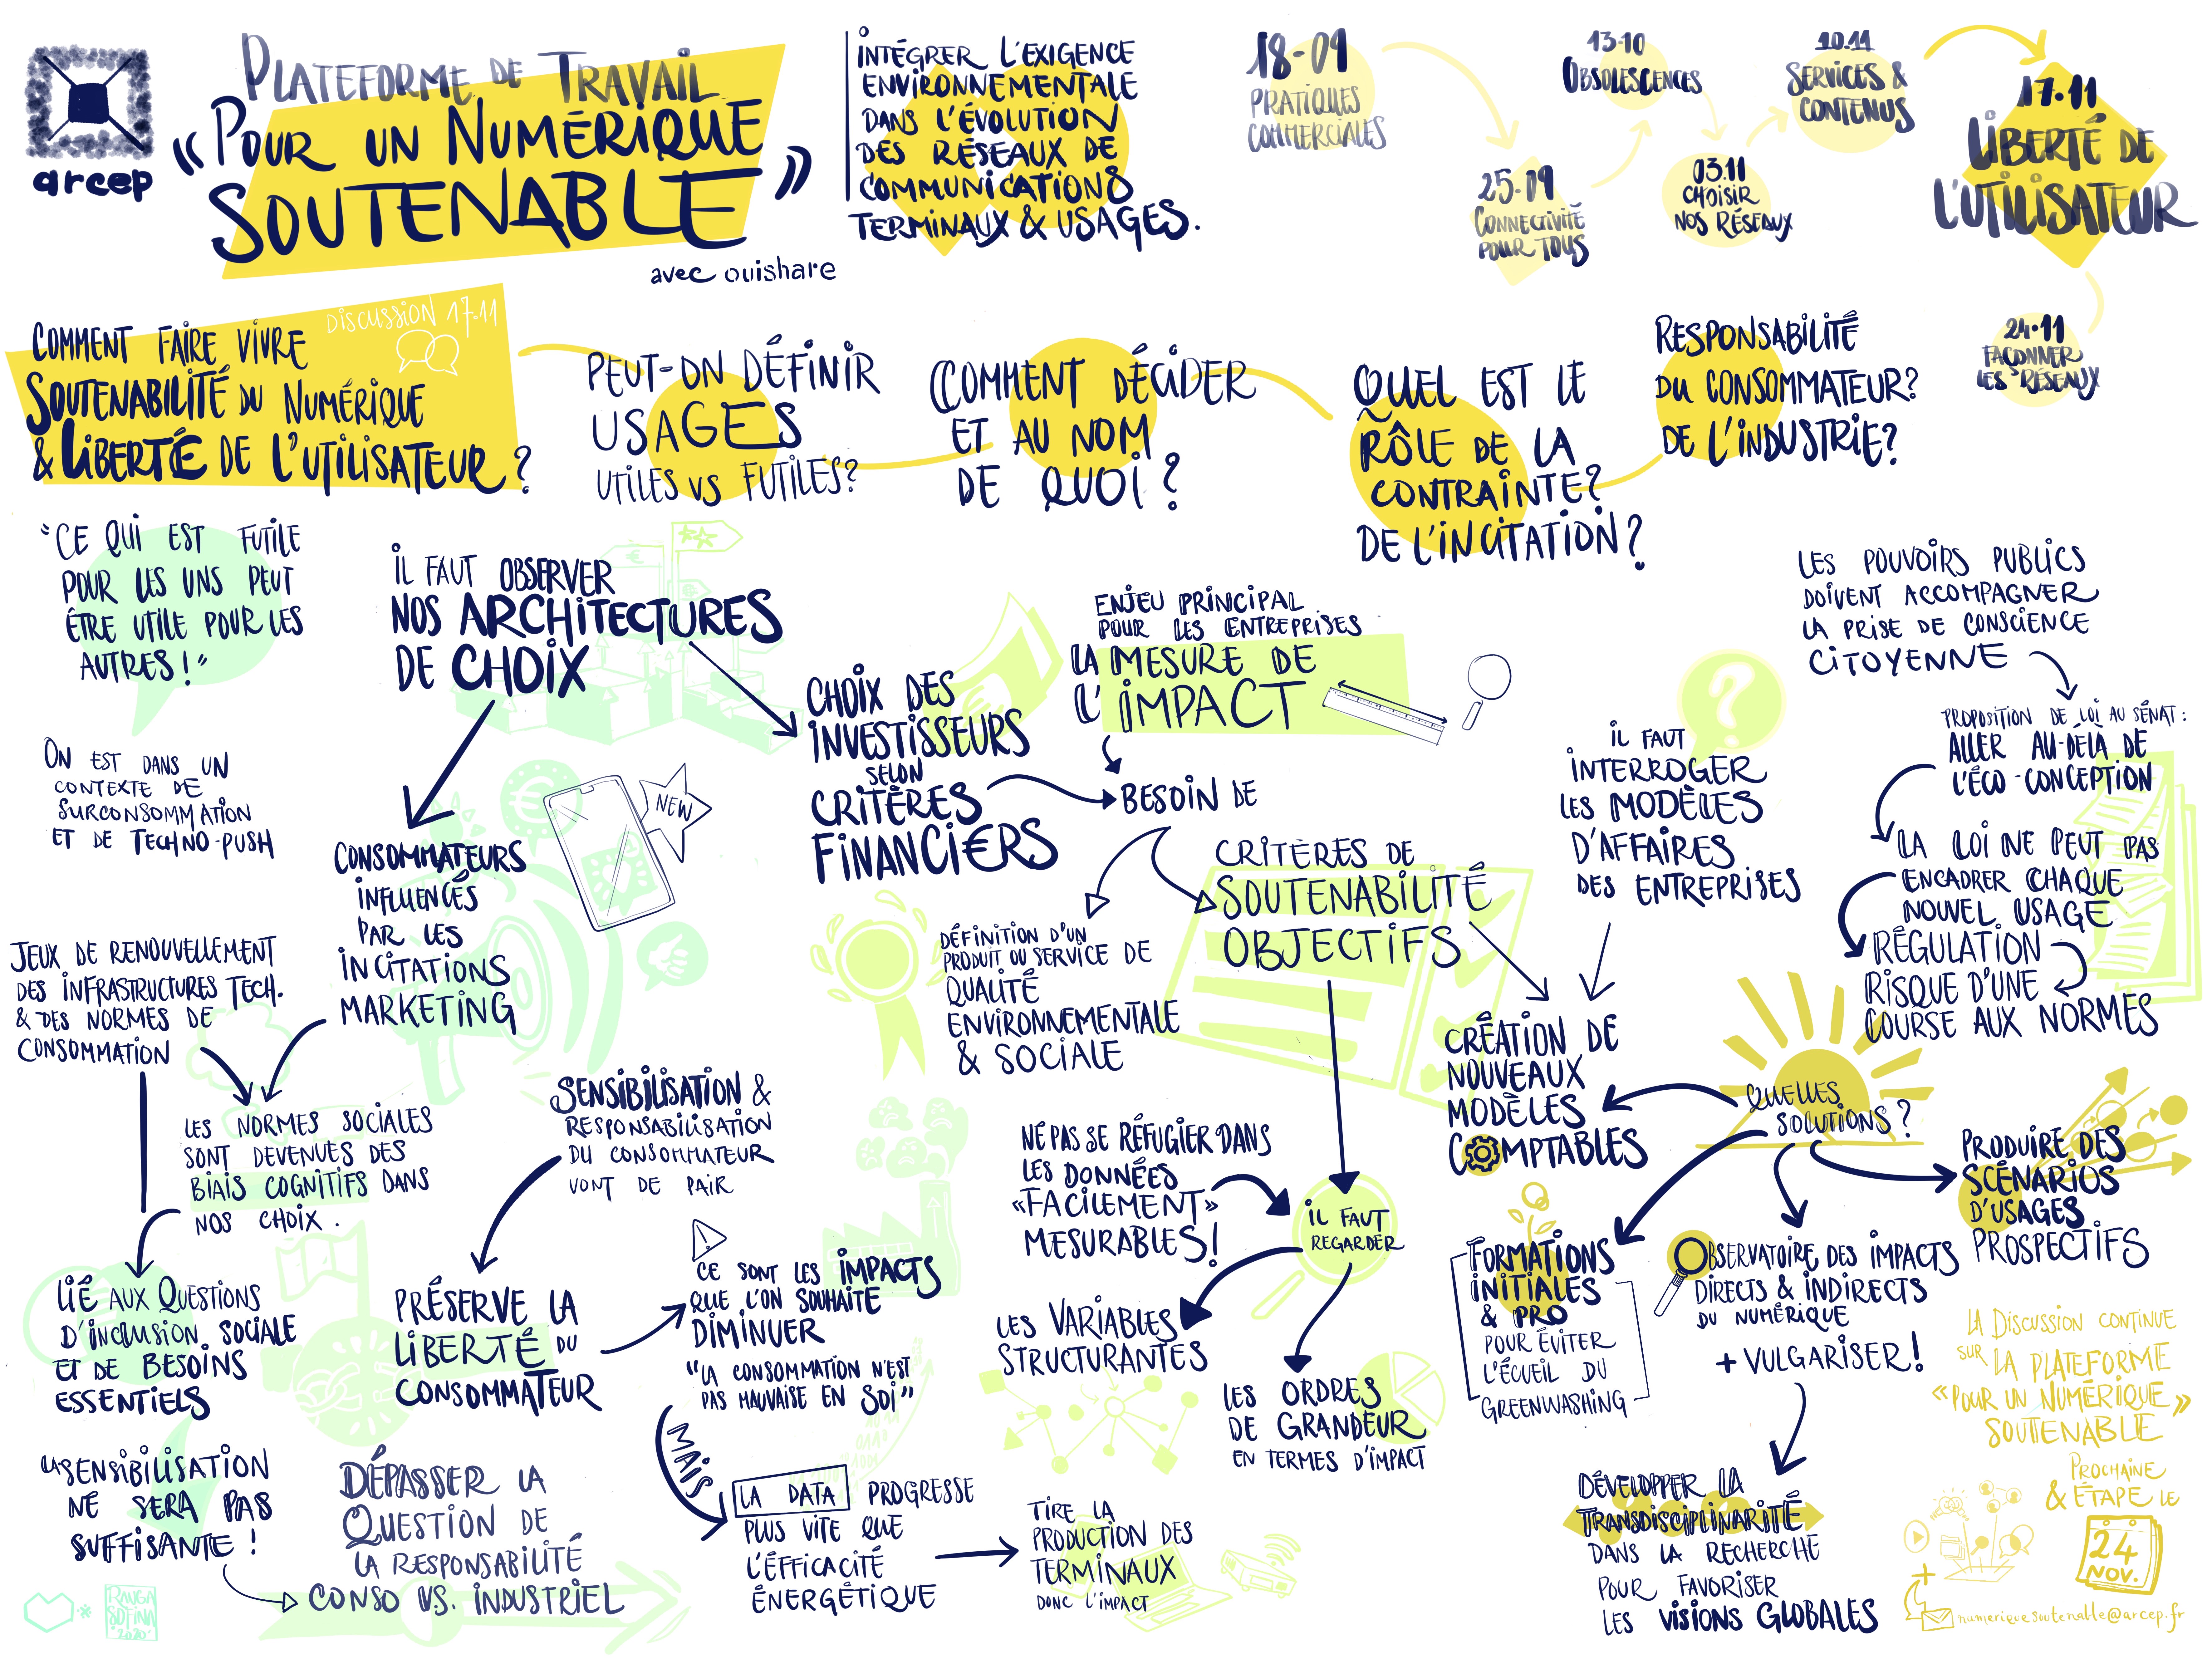 arcep
PLATEFORME DE TRAVAIL
« POUR UN NUMÉRIQUE
SOUTENABLE »
avec ouishare
INTÉGRER L'EXIGENCE
ENVIRONNEMENTALE
DANS L'ÉVOLUTION
DES RÉSEAUX DE
COMMUNICATIONS
TERMINAUX & USAGES.
18-09
PRATIQUES
COMMERCIALES
25.09
CONNECTIVITÉ
POUR TOUS
13-10
OBSOLESCENCES
03.11
CHOISIR
NOS RÉSEAUX
10.11
SERVICES &
CONTENUS
17.11
LIBERTÉ DE
L'UTILISATEUR
24.11
FAÇONNER
LES RÉSEAUX
DISCUSSION 17.11
COMMENT FAIRE VIVRE
SOUTENABILITÉ DU NUMÉRIQUE
& LIBERTÉ DE L'UTILISATEUR ?
PEUT-ON DÉFINIR
USAGES
UTILES VS FUTILES?
COMMENT DÉCIDER
ET AU NOM
DE QUOI ?
QUEL EST LE
RÔLE DE LA
CONTRAINTE?
DE L'INCITATION?
RESPONSABILITÉ
DU CONSOMMATEUR?
DE L'INDUSTRIE?
"CE QUI EST FUTILE
POUR LES UNS PEUT
ÊTRE UTILE POUR LES
AUTRES !"
ON EST DANS UN
CONTEXTE DE
SURCONSOMMATION
ET DE TECHNO-PUSH
JEUX DE RENOUVELLEMENT
DES INFRASTRUCTURES TECH.
& DES NORMES DE
CONSOMMATION
IL FAUT OBSERVER
NOS ARCHITECTURES
DE CHOIX
CONSOMMATEURS
INFLUENCÉS
PAR LES
INCITATIONS
MARKETING
NEW
LES NORMES SOCIALES
SONT DEVENUES DES
BIAIS COGNITIFS DANS
NOS CHOIX.
LIÉ AUX QUESTIONS
D'INCLUSION SOCIALE
ET DE BESOINS
ESSENTIELS
LA SENSIBILISATION
NE SERA PAS
SUFFISANTE !
DÉPASSER LA
QUESTION DE
LA RESPONSABILITÉ
CONSO V.S. INDUSTRIEL
SENSIBILISATION &
RESPONSABILISATION
DU CONSOMMATEUR
VONT DE PAIR
PRÉSERVE LA
LIBERTÉ DU
CONSOMMATEUR
!
CE SONT LES IMPACTS
QUE L'ON SOUHAITE
DIMINUER
"LA CONSOMMATION N'EST
PAS MAUVAISE EN SOI"
MAIS
LA DATA PROGRESSE
PLUS VITE QUE
L'ÉFFICACITÉ
ÉNERGÉTIQUE
TIRE LA
PRODUCTION DES
TERMINAUX
DONC L'IMPACT
CHOIX DES
INVESTISSEURS
SELON
CRITÈRES
FINANCI€RS
ENJEU PRINCIPAL
POUR LES ENTREPRISES
LA MESURE DE
L'IMPACT
BESOIN DE
DÉFINITION D'UN
PRODUIT OU SERVICE DE
QUALITÉ
ENVIRONNEMENTALE
& SOCIALE
CRITÈRES DE
SOUTENABILITÉ
OBJECTIFS
NE PAS SE RÉFUGIER DANS
LES DONNÉES
«FACILEMENT»
MESURABLES!
IL FAUT
REGARDER
LES VARIABLES
STRUCTURANTES
LES ORDRES
DE GRANDEUR
EN TERMES D'IMPACT
?
IL FAUT
INTERROGER
LES MODÈLES
D'AFFAIRES
DES ENTREPRISES
CRÉATION DE
NOUVEAUX
MODÈLES
COMPTABLES
LES POUVOIRS PUBLICS
DOIVENT ACCOMPAGNER
LA PRISE DE CONSCIENCE
CITOYENNE
PROPOSITION DE LOI AU SÉNAT:
ALLER AU-DELÀ DE
L'ÉCO-CONCEPTION
LA LOI NE PEUT PAS
ENCADRER CHAQUE
NOUVEL USAGE
RÉGULATION
RISQUE D'UNE
COURSE AUX NORMES
QUELLES
SOLUTIONS?
FORMATIONS
INITIALES
& PRO
POUR ÉVITER
L'ÉCUEIL DU
GREENWASHING
OBSERVATOIRE DES IMPACTS
DIRECTS & INDIRECTS
DU NUMÉRIQUE
+ VULGARISER!
PRODUIRE DES
SCÉNARIOS
D'USAGES
PROSPECTIFS
DÉVELOPPER LA
TRANSDISCIPLINARITÉ
DANS LA RECHERCHE
POUR FAVORISER
LES VISIONS GLOBALES
LA DISCUSSION CONTINUE
SUR LA PLATEFORME
«POUR UN NUMÉRIQUE
SOUTENABLE»
PROCHAINE
& ÉTAPE LE
24
NOV.
+
numeriquesoutenable@arcep.fr
2020